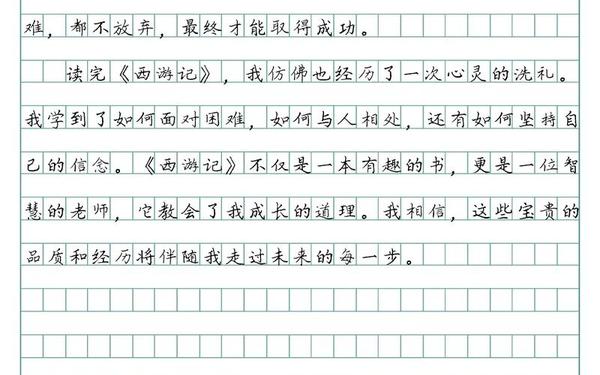 难，都不放弃，最终才能取得成功。
读完《西游记》，我仿佛也经历了一次心灵的洗礼。
我学到了如何面对困难，如何与人相处，还有如何坚持自
己的信念。《西游记》不仅是一本有趣的书，更是一位智
慧的老师，它教会了我成长的道理。我相信，这些宝贵的
品质和经历将伴随我走过未来的每一步。